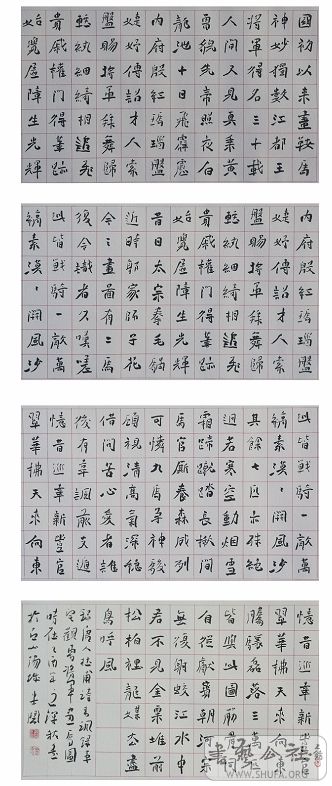 國初以来畫鞍馬
神妙獨數江都王
將軍得名三十載
人間又見真乘黃
曾貌先帝照夜白
龍池十日飛霹靂
內府殷紅瑪瑙盤
婕妤傳詔才人索
盤賜將軍拜舞歸
輕紈細綺相追飛
貴戚權門得筆跡
始覺屏障生光輝
婕妤傳詔才人索
盤賜將軍拜舞歸
輕紈細綺相追飛
貴戚權門得筆跡
始覺屏障生光輝
昔日太宗拳毛騧
近時郭家師子花
今之畫圖有二馬
復令識者久嘆嗟
此皆戰騎一敵萬
縞素漠〻開風沙
此皆戰騎一敵萬
縞素漠〻開風沙
其餘七匹亦殊絕
迥若寒空動烟雪
霜蹄蹴踏長楸間
馬官廝養森成列
可憐九馬爭神駿
顧視清高氣深穩
借問苦心愛者誰
後有韋諷前支遁
憶昔巡幸新豐宮
翠華拂天來向東
憶昔巡幸新豐宮
翠華拂天來向東
騰驤磊落三萬匹
皆與此圖筋骨同
自從獻寶朝河宗
無復射蛟江水中
君不見金粟堆前
松柏裡龍媒去盡
鳥呼風
錄唐人杜甫詩韋諷錄事
宅觀曹將軍畫馬圖
深秋書
WWW.SHUFA.ORG